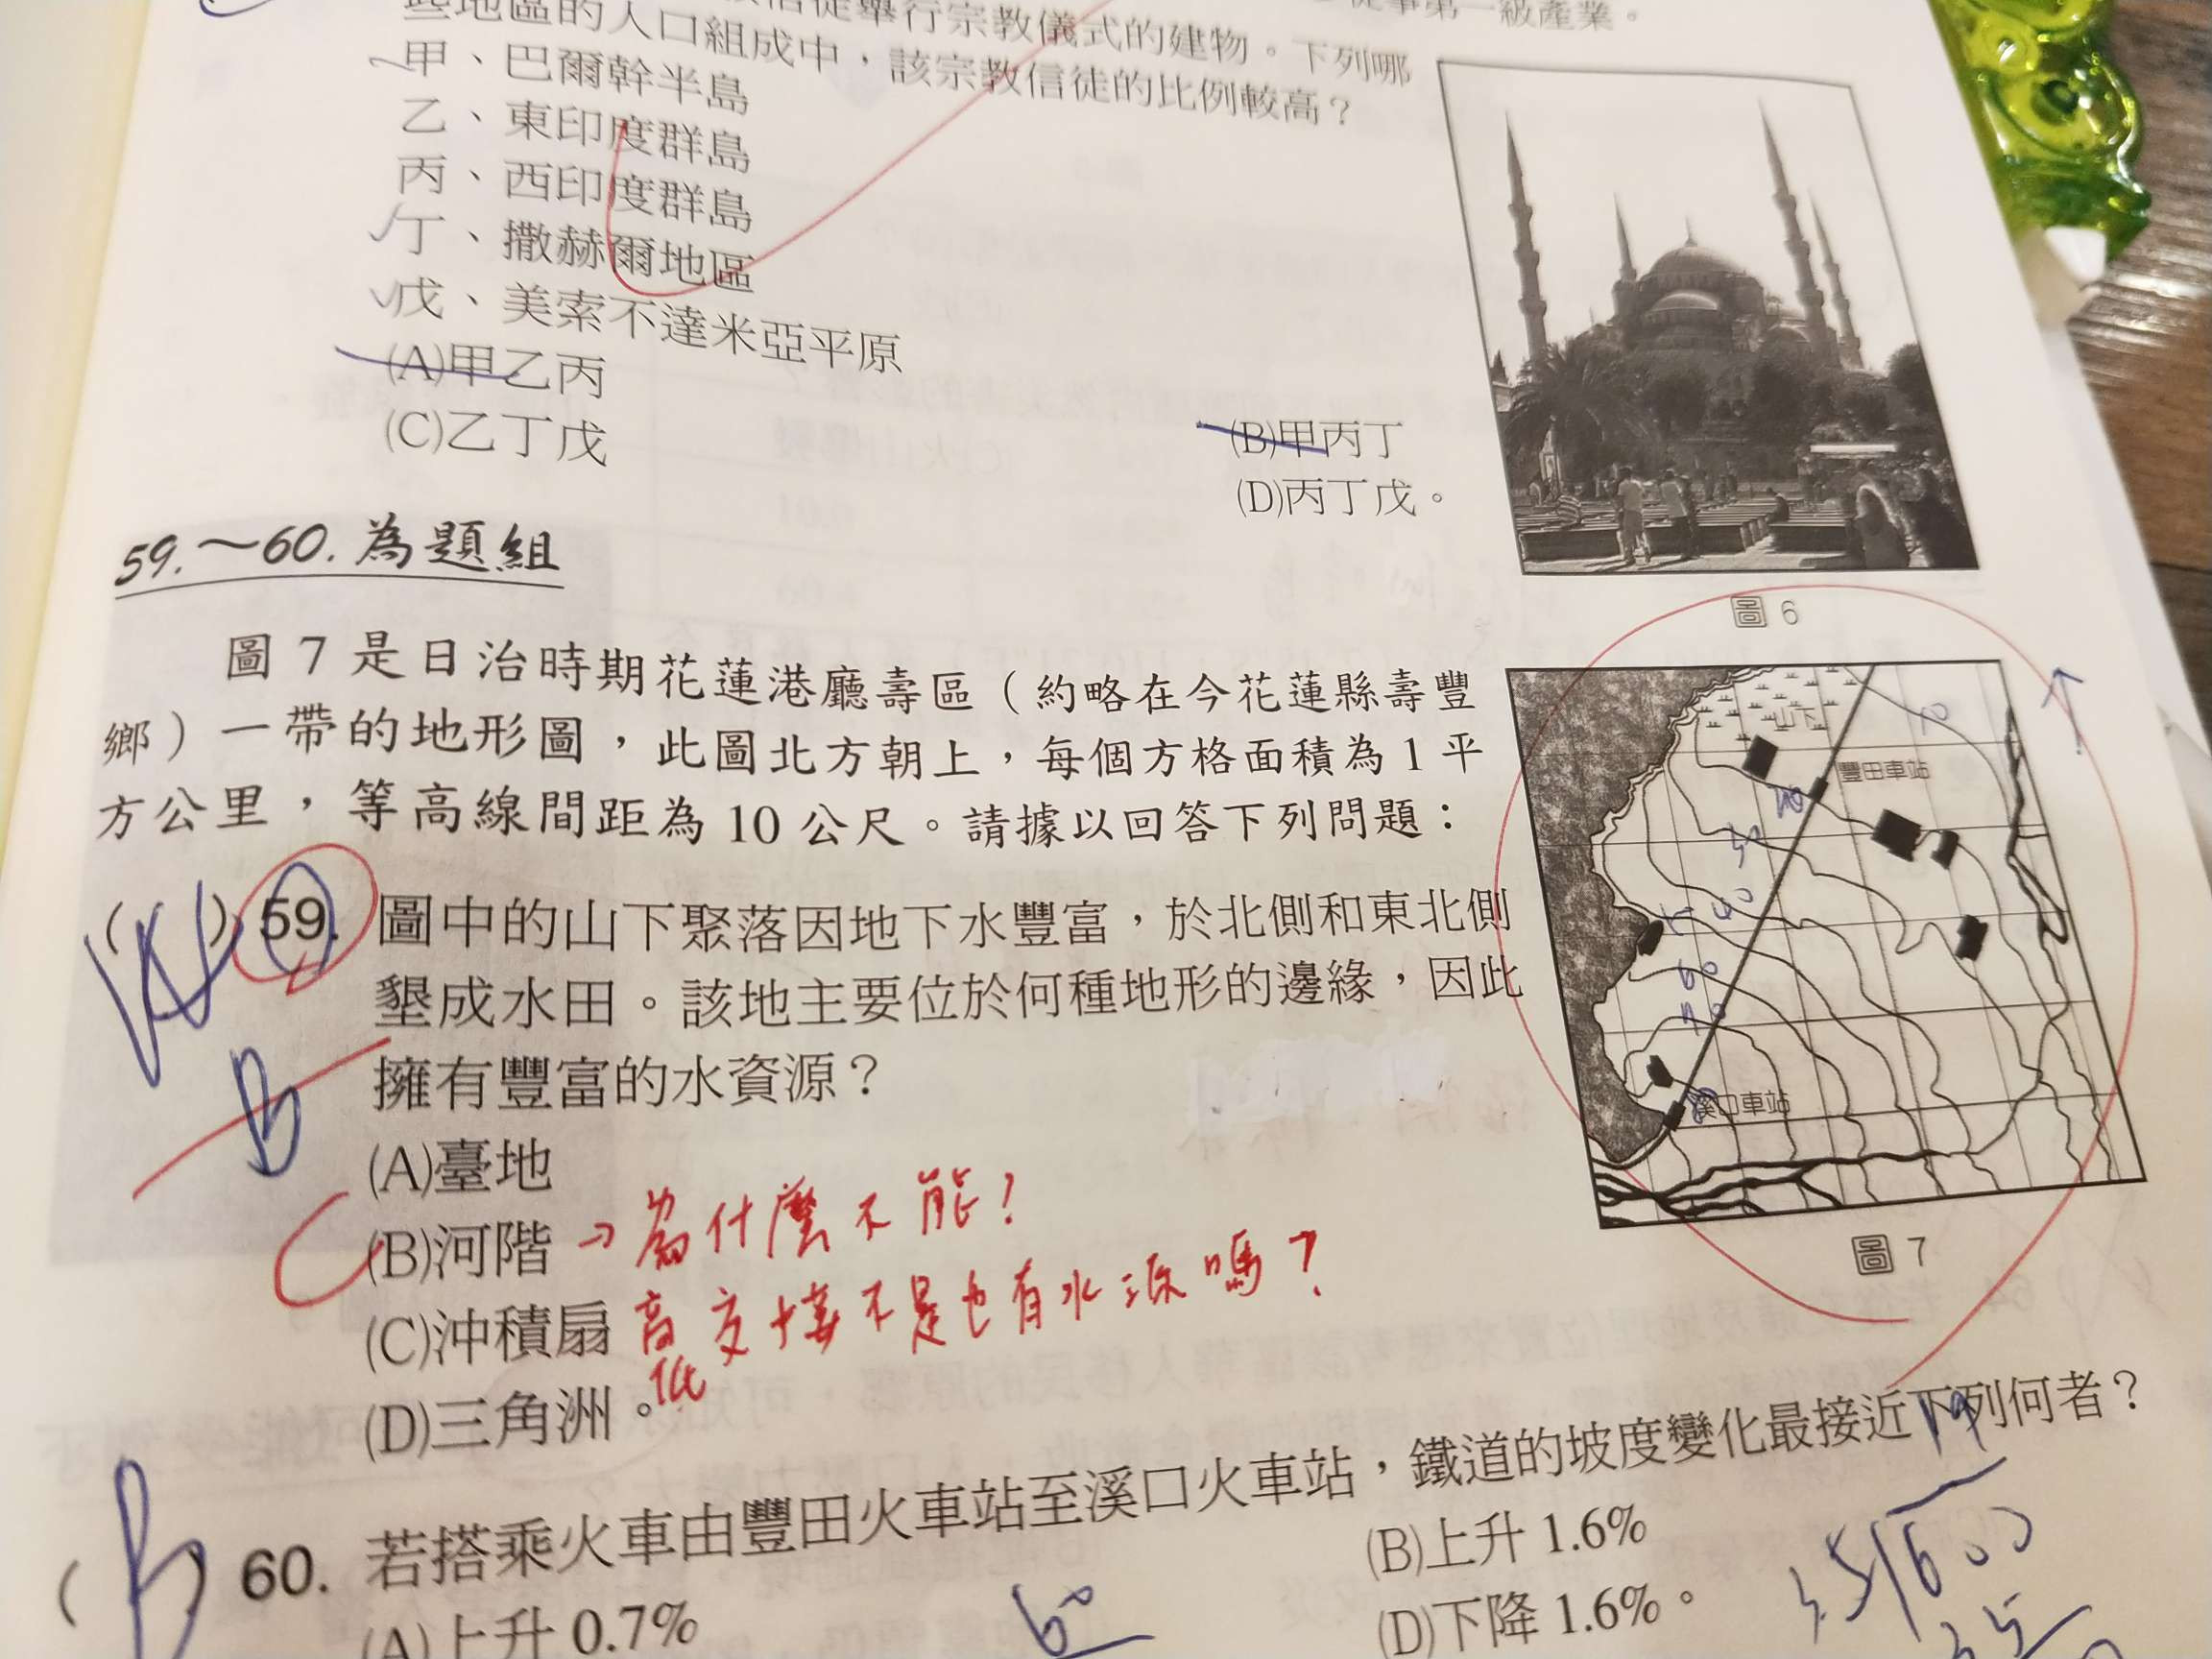 信徒舉行宗教儀式的建物。下列哪
從事第一級產業。
些地區的人口組成中，該宗教信徒的比例較高？
甲、巴爾幹半島
乙、東印度群島
丙、西印度群島
丁、撒赫爾地區
戊、美索不達米亞平原
(A)甲乙丙
(B)甲丙丁
(C)乙丁戊
(D)丙丁戊。
圖 6
59.～60.為題組
圖 7 是日治時期花蓮港廳壽區（約略在今花蓮縣壽豐
鄉）一帶的地形圖，此圖北方朝上，每個方格面積為 1 平
方公里，等高線間距為 10 公尺。請據以回答下列問題：
山下
豐田車站
溪口車站
圖 7
( ) 59. 圖中的山下聚落因地下水豐富，於北側和東北側
墾成水田。該地主要位於何種地形的邊緣，因此
擁有豐富的水資源？
B
(A)臺地
(B)河階 → 為什麼不能？
(C)沖積扇 高低交接不是也有水源嗎？
(D)三角洲。
( B ) 60. 若搭乘火車由豐田火車站至溪口火車站，鐵道的坡度變化最接近下列何者？
(A)上升 0.7%
(B)上升 1.6%
(D)下降 1.6%。
60